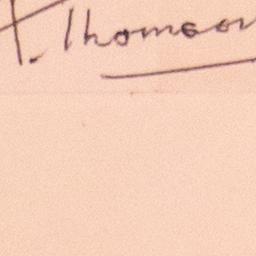 . Thomson